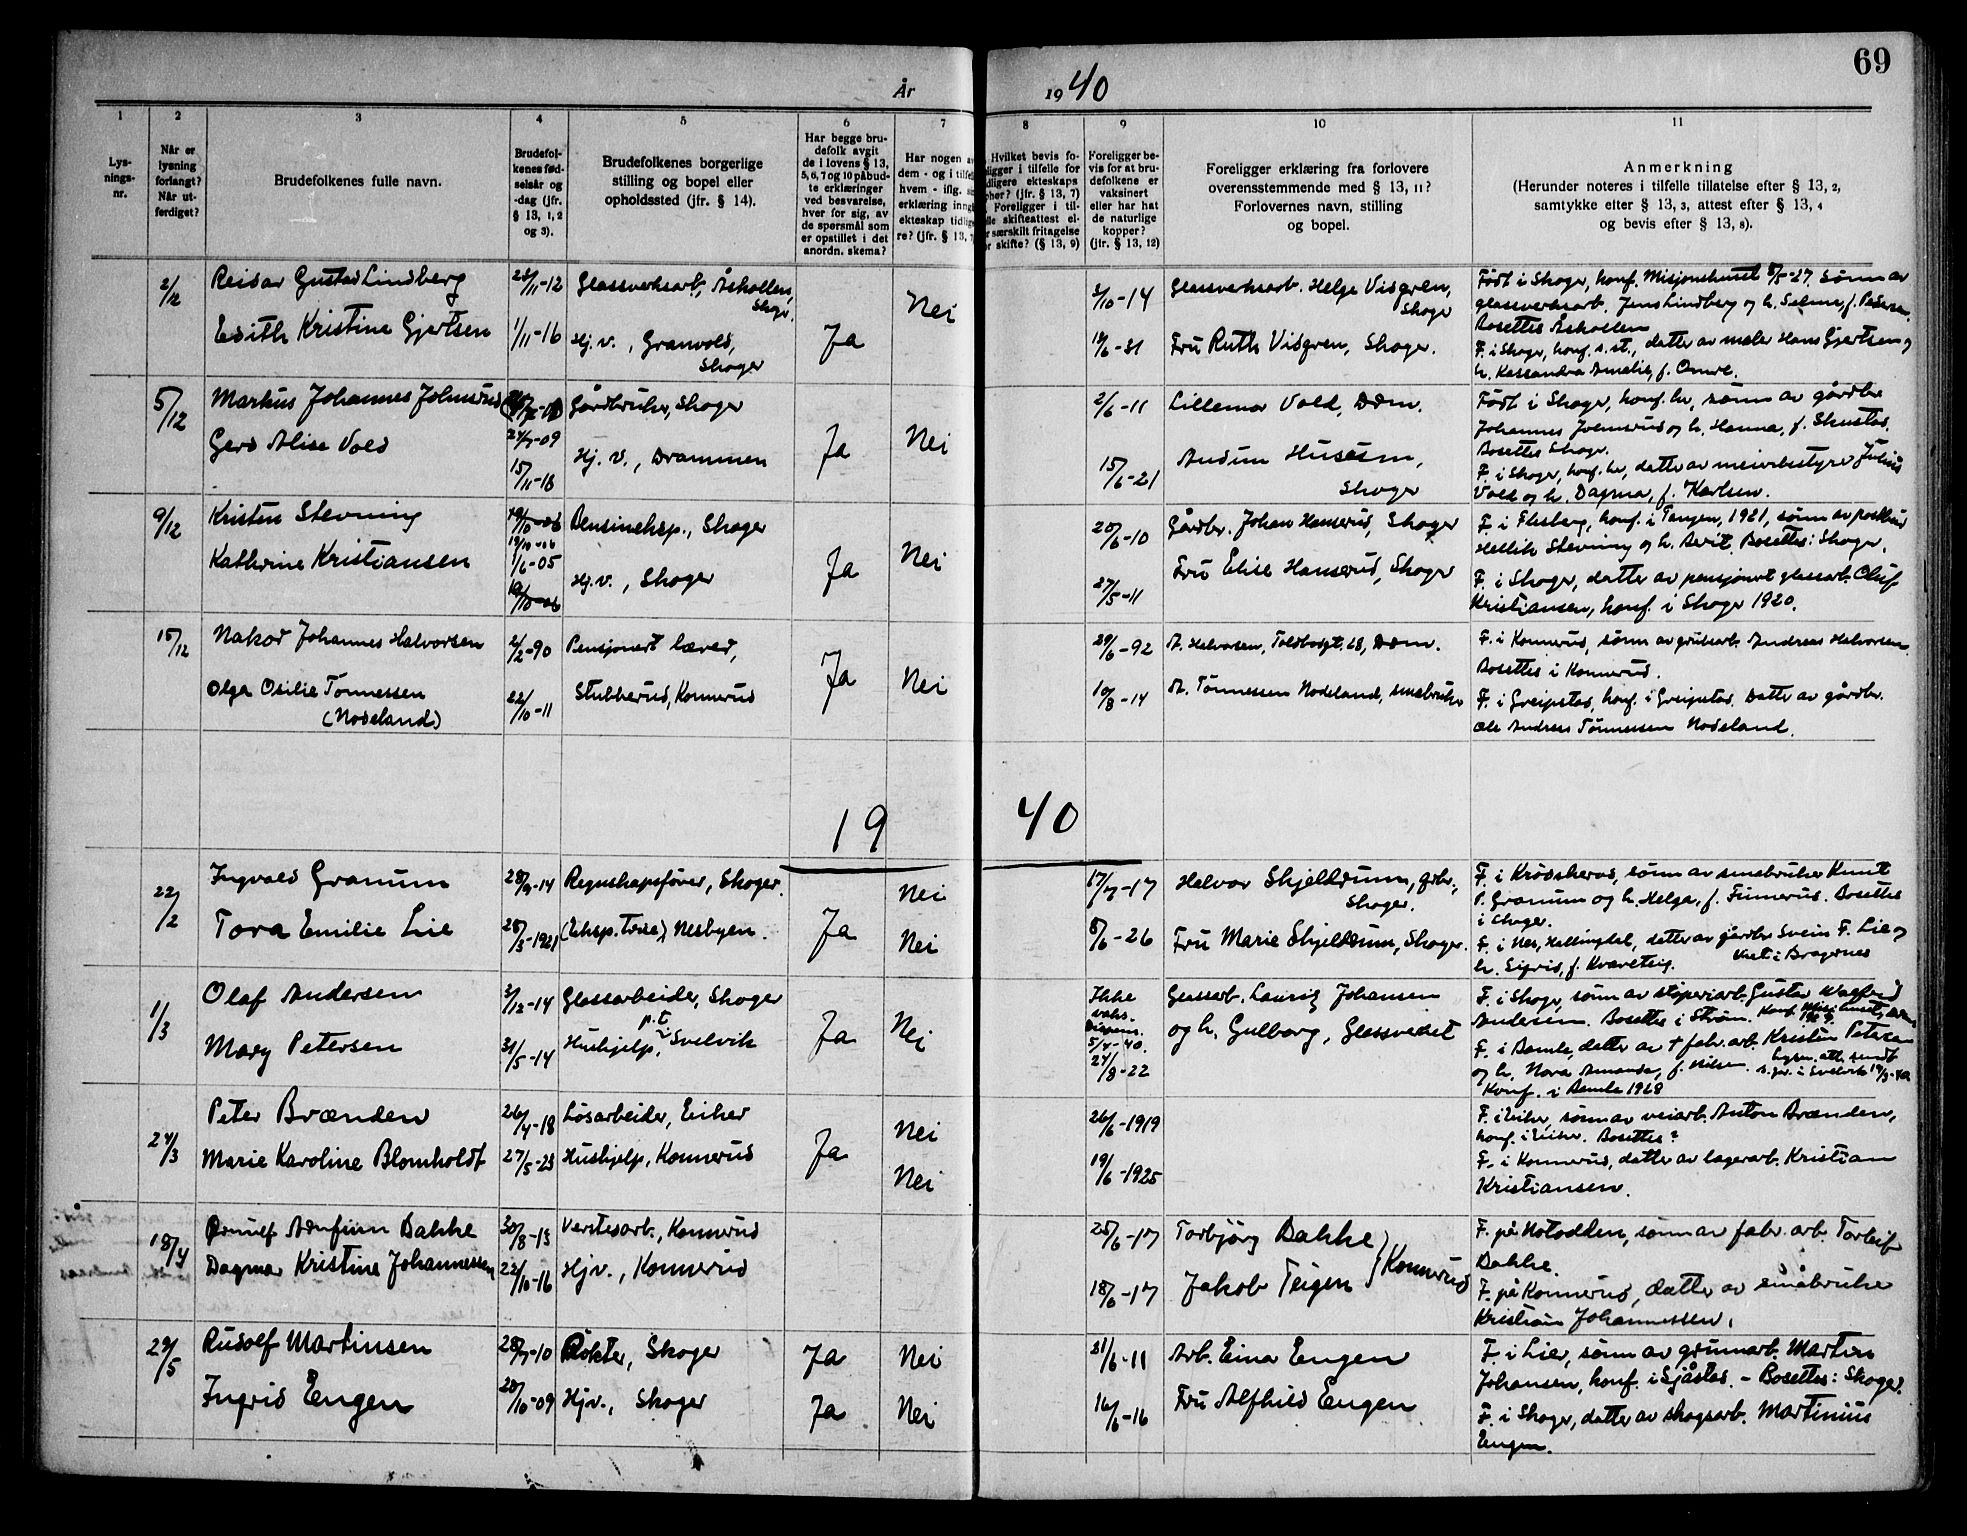 69
År 1940
1 2 3 4 5 6 7 8 9 10 11
Lys-
nings-
nr.
Når er
lysning
forlangt?
Når ut-
ferdiget?
Brudefolkenes fulle navn.
Brudefol-
kenes fød-
selsår og
-dag (jfr.
§ 13, 1, 2
og 3).
Brudefolkenes borgerlige
stilling og bopel eller
opholdssted (jfr. § 14).
Har begge bru-
defolk avgit
de i lovens § 13,
5, 6, 7 og 10 påbud-
te erklæringer
ved besvarelse,
hver for sig, av
de spørsmål som
er opstillet i det
anordn. skema?
Har nogen av
dem - og i tilfelle
hvem - iflg. sin
erklæring inngått
ekteskap tidlige-
re? (jfr. § 13, 7)
Hvilket bevis fo-
ligger i tilfelle for
dligere ekteskaps
pher? (jfr. § 13, 7)
Foreligger i til-
lle skifteattest el-
r særskilt fritagelse
r skifte? (§ 13, 9)
Foreligger be-
vis for at bru-
defolkene er
vaksinert
eller har hat
de naturlige
kopper?
(jfr. § 13, 12)
Foreligger erklæring fra forlovere
overensstemmende med § 13, 11?
Forlovernes navn, stilling
og bopel.
Anmerkning
(Herunder noteres i tilfelle tillatelse efter § 13, 2,
samtykke efter § 13, 3, attest efter § 13, 4
og bevis efter § 13, 8).
2/12 Reidar Gustav Lindberg 28/11-12 Glassverksarb., Åskollen, Skoger. Nei 3/10-14 Glassverksarb. Helge Visgren, Skoger
Født i Skoger, konf. Misjonshuset 8/5-27, sønn av
glassverksarb. Jens Lindberg og h. Selma, f. Pedersen.
Bosettes Åskollen
Edith Kristine Gjertsen 1/11-16 Hj.v., Granvold, Skoger Ja Fru Ruth Visgren, Skoger.
F. i Skoger, konf. s.st., datter av maler Hans Gjertsen og
h. Kassandra Amalie, f. Omre.
5/12 Markus Johannes Johnsrud Gårdbruker, Skoger 2/6-11 Lillemor Vold, Drm.
Født i Skoger, konf. hr, sønn av gårdbr.
Johannes Johnsrud og h. Hanna, f. Skustad.
Bosettes Skoger.
Gerd Alise Vold 24/7-09 15/11-18 Hj. v., Drammen Ja Nei 15/6-21 Audun Husum, Skoger
F. i Skoger, konf. hr, datter av meieribestyrer Julius
Vold og h. Dagma, f. Karlsen.
9/12 Kristen Stevning 19/10-06 Bensineksp., Skoger 20/6-10 Gårdbr. Johan Hanserud, Skoger
F. i Flesberg, konf. i Tangen, 1921, sønn av postbud
Hellik Stevning og h. Berit. Bosettes: Skoger.
Kathrine Kristiansen 19/10-06 1/6-05 19/10-06 Hj.v., Skoger Ja Nei 27/5-11 Fru Elise Hanserud, Skoger
F. i Skoger, datter av pensjonert glassarb. Oluf
Kristiansen, konf. i Skoger 1920.
15/12 Nakod Johannes Halvorsen 2/2-90 Pensjonert lærer, 29/6-92 A. Halvorsen, Toldbodgt. 68, Drm.
F. i Konnerud, sønn av grubearb. Andreas Halvorsen.
Bosettes i Konnerud.
Olga Osilie Tønnessen
(Nodeland) 22/10-11 Stubberud, Konnerud Ja Nei 10/8-14 A. Tønnessen Nodeland, småbruker
F. i Greipstad, konf. i Greipstad. Datter av gårdbr.
Ole Andreas Tønnessen Nodeland.
1940
22/2 Ingvald Granum 28/9-14 Regnskapsfører, Skoger. Nei 17/7-17 Halvor Skjelbrum, grbr., Skoger.
F. i Krødsherad, sønn av småbruker Knut
P. Granum og h. Helga, f. Finnerud. Bosettes
i Skoger.
Tora Emilie Lie 28/3-1921 (Eksp. ) Nesbyen. Ja Nei 8/6-26 Fru Marie Skjelbrum, Skoger.
F. i Nes, Hallingdal, datter av gårdbr. Svein F. Lie og
h. Sigrid, f. Viet i Bragernes
1/3 Olaf Andersen 3/12-14 Glassarbeider, Skoger Ikke vaks. Dispens. 5/4-40. Glassarb. Lauritz Johansen
F. i Skoger, sønn av støperiarb. Gustav Walfred
Andersen. Bosettes i Strøm.
Mary Petersen 31/5-14 Hushjelp, p.t. i Svelvik Ja Nei 24/8-22 og h. Gulborg, Glassverket
F. i Bamle, datter av + fabr.arb. Kristen Petersen
og h. Nora Amanda, f. Nilsen. Lysn. att. sendt
s.pr. i Svelvik 19/3-40
Konf. i Bamle 1928
24/3 Peter Brænden 26/4-18 Løsarbeider, Eiker Nei 26/6-1919
F. i Eiker, sønn av veiarb. Anton Brænden,
konf. i Eiker. Bosettes?
Marie Karoline Blomholdt 27/5-23 Hushjelp, Konnerud Ja Nei 19/6-1925
F. i Konnerud, datter av lagerarb. Kristian
Kristiansen.
18/4 Ørnulf Arnfinn Bakke 30/8-13 Verstedsarb., Konnerud 25/6-17 Torbjørg Bakke } Konnerud
F. på Notodden, sønn av fabr. arb. Torleif
Bakke.
Dagmar Kristine Johannessen 22/10-16 Hjv., Konnerud 18/6-17 Jakob Teigen
F. på Konnerud, datter av småbruker
Kristian Johannessen.
29/5 Rudolf Martinsen 28/7-10 Røkter, Skoger Ja Nei 21/6-11 Arb. Einar Engen
F. i Lier, sønn av grunnarb. Martin
Johansen, konf. i Sjåstad. - Bosettes: Skoger.
Ingrid Engen 20/10-09 Hjv., Skoger Ja Nei 16/6-16 Fru Alfhild Engen
F. i Skoger, datter av skogsarb. Martinius
Engen.